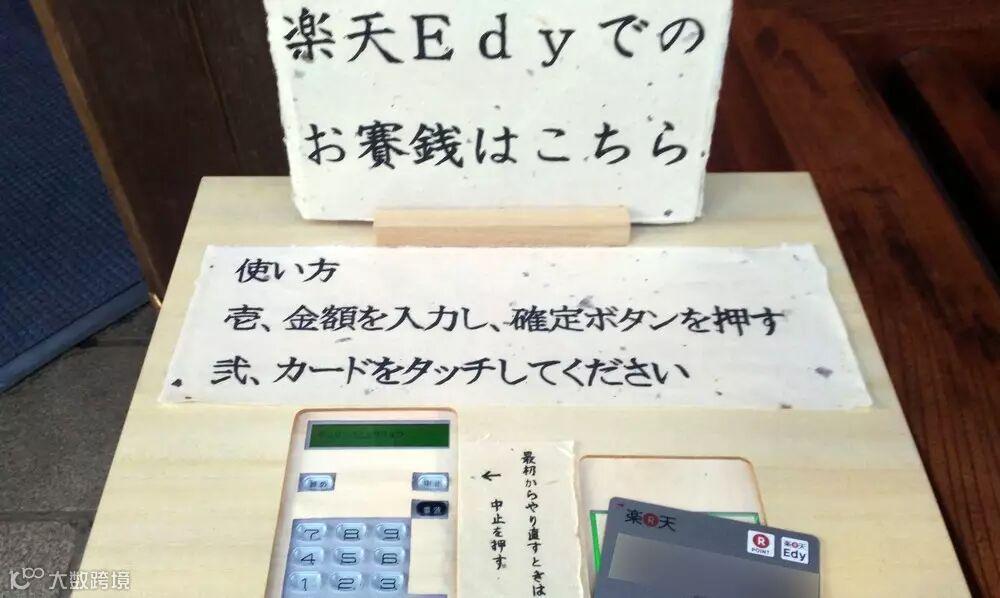 楽天Edyでの
お賽銭はこちら
使い方
壱、金額を入力し、確定ボタンを押す
弐、カードをタッチしてください
最初からやり直すときは
← 中止を押す。
中止
7 8 9
4 5 6
1 2 3
楽天
R POINT
楽天 Edy
大数跨境